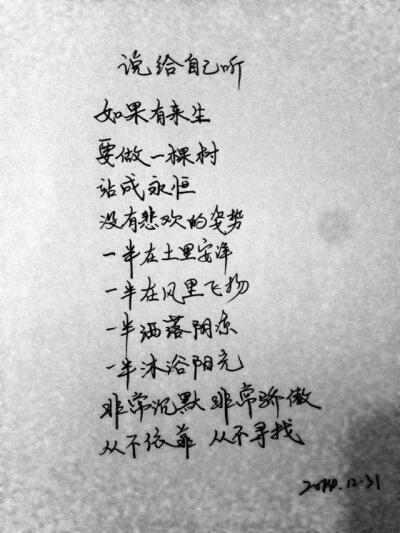 说给自己听
如果有来生
要做一棵树
站成永恒
没有悲欢的姿势
一半在土里安详
一半在风里飞扬
一半洒落阴凉
一半沐浴阳光
非常沉默 非常骄傲
从不依靠 从不寻找
2014.12.31